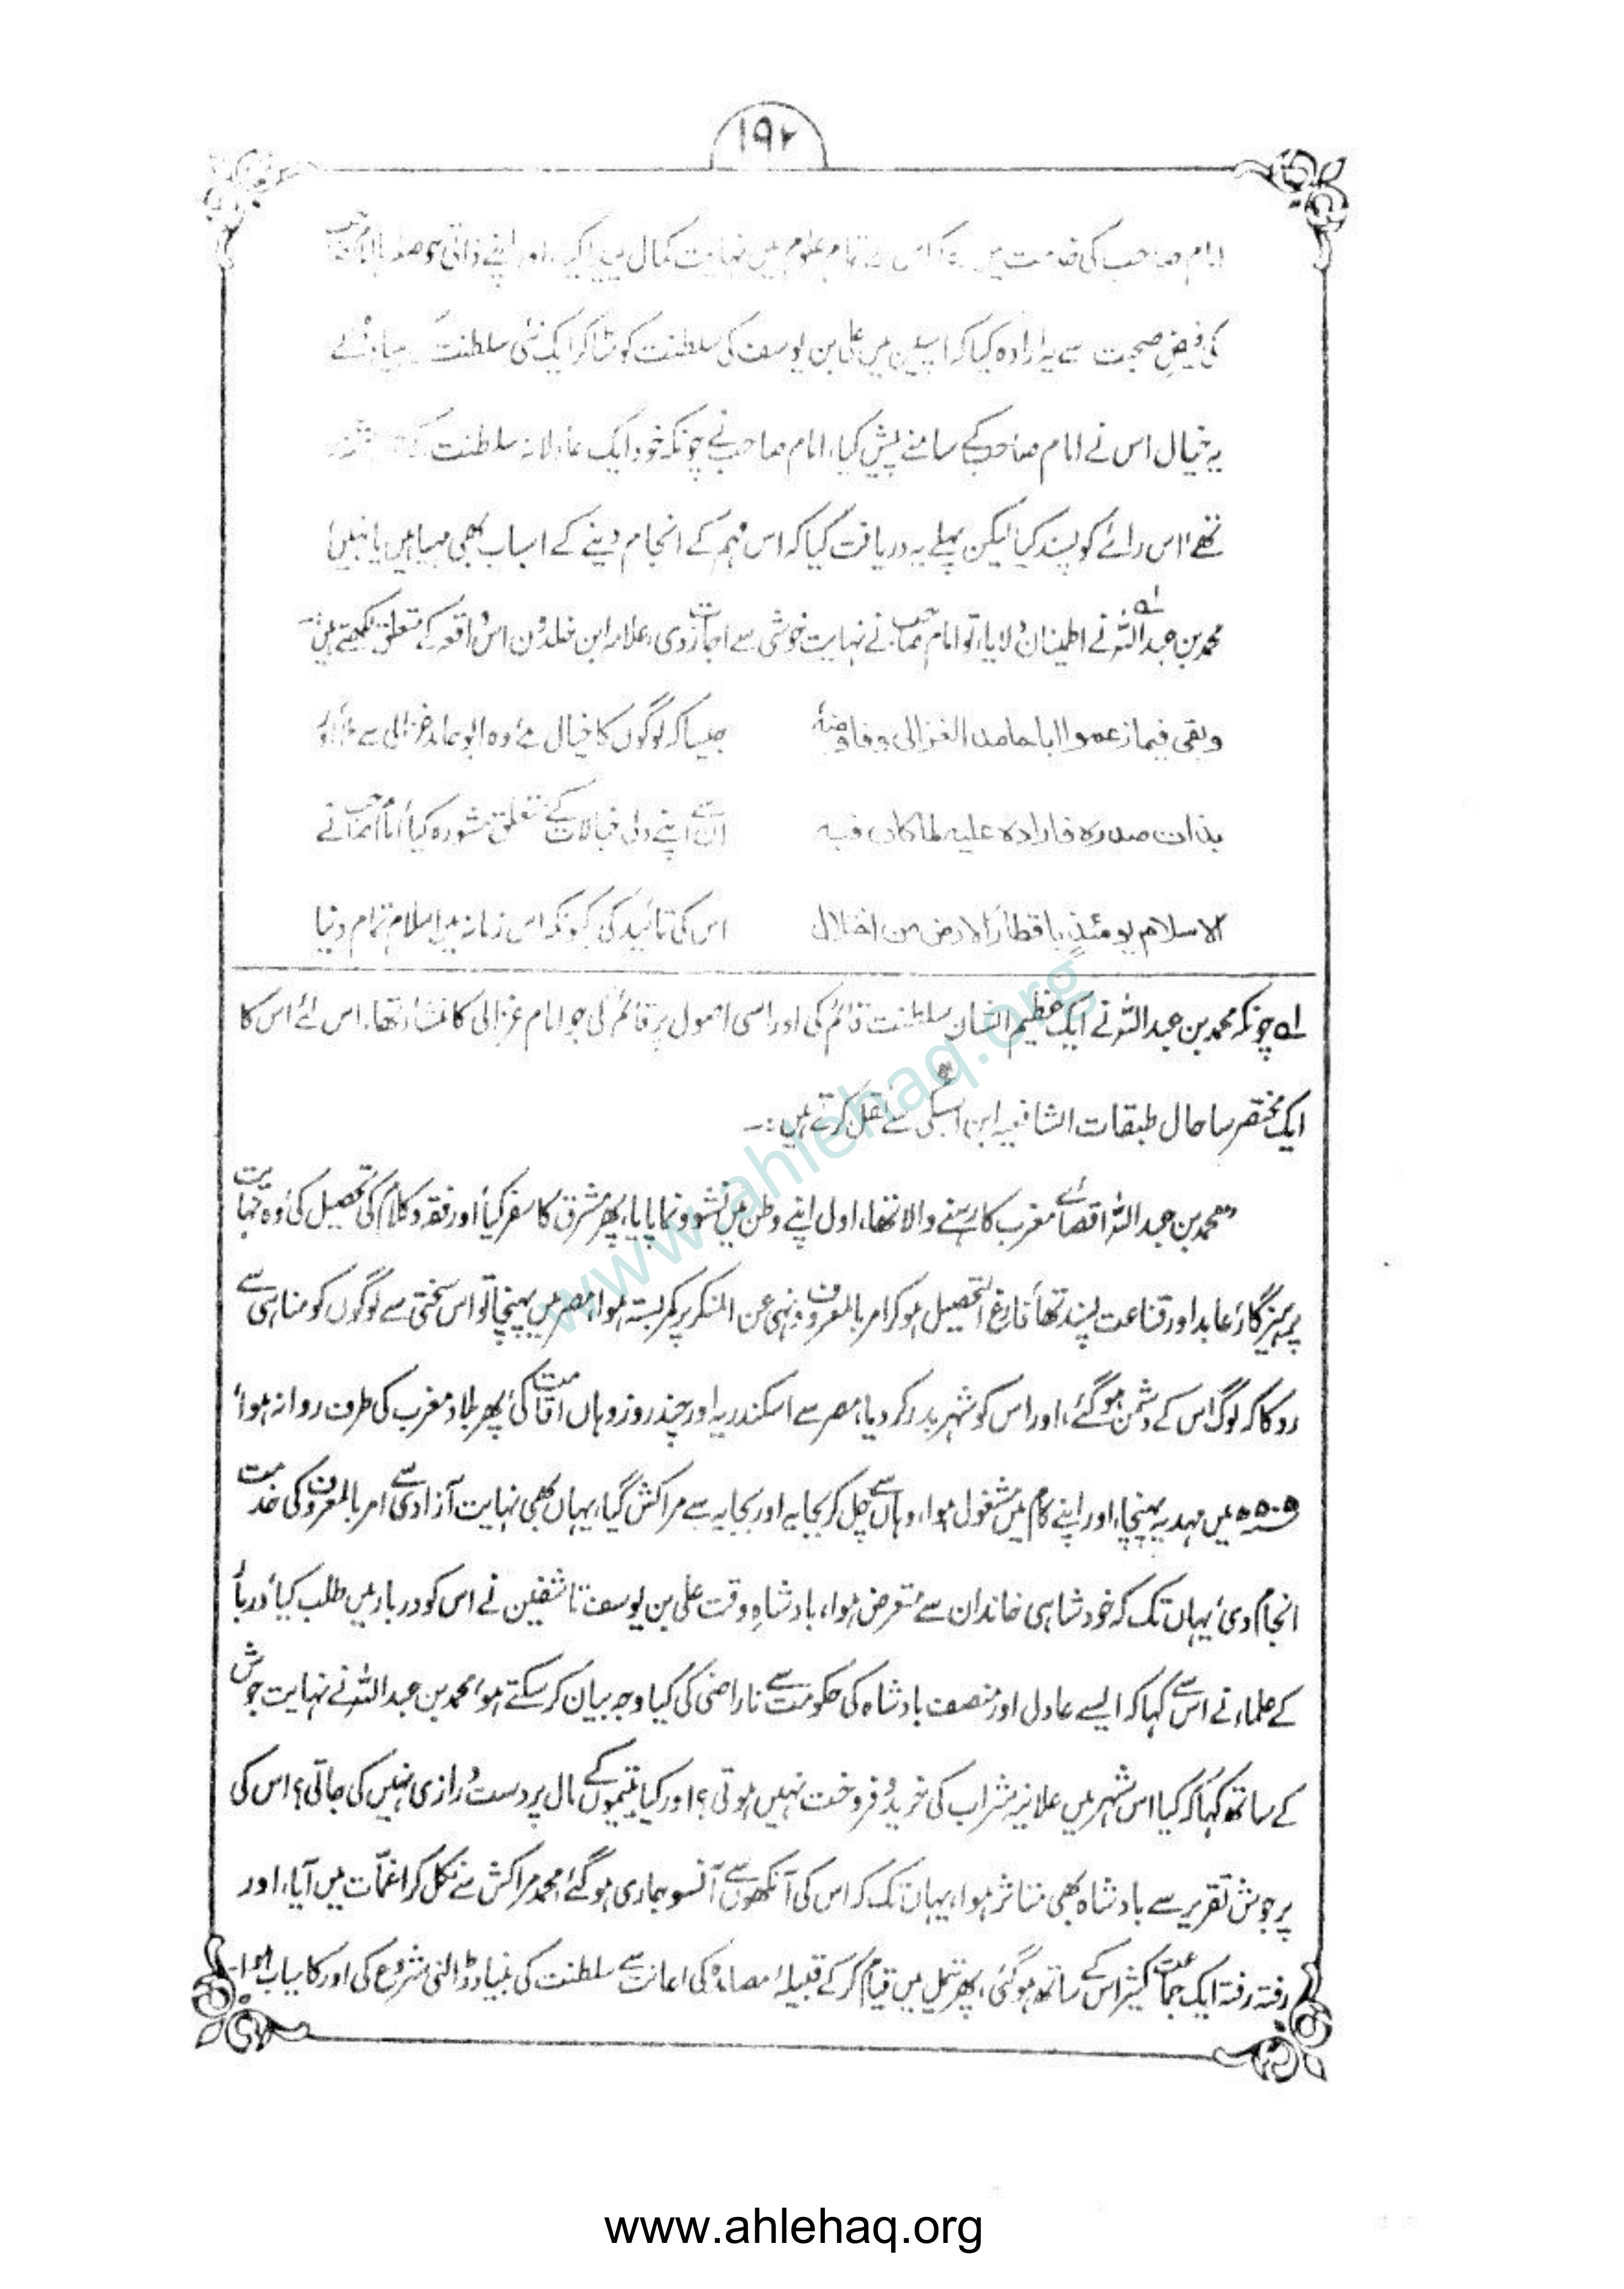 ۱۹۲
امام صاحب کی خدمت میں رہ کر اس نے تمام علوم میں نہایت کمال پیدا کیا، اور اپنے ذاتی حوصلہ یا امام صاحب
کی فیضِ صحبت سے یہ ارادہ کیا کہ اسپین میں علی بن یوسف کی سلطنت کو مٹا کر ایک نئی سلطنت کی بنیاد ڈالے
یہ خیال اس نے امام صاحب کے سامنے پیش کیا، امام صاحب نے چونکہ خود ایک عادلانہ سلطنت کے
تھے، اس رائے کو پسند کیا لیکن پہلے یہ دریافت کیا کہ اس مہم کے انجام دینے کے اسباب بھی مہیا ہیں یا نہیں؟
محمد بن عبداللہ لہ نے اطمینان دلایا، تو امام صاحب نے نہایت خوشی سے اجازت دی، علامہ ابن خلدون اس واقعہ کے متعلق لکھتے ہیں:۔
ولقی فیما زعموا ابا حامد الغزالی وفاوضہ
جیسا کہ لوگوں کا خیال ہے وہ ابو حامد غزالی سے ملا، اور
بذات صدرہ فارادہ علیہ لما کان فیہ
ان سے اپنے دلی خیالات کے متعلق مشورہ کیا، امام صاحب نے
الاسلام یومئذٍ باقطار الارض من اختلال
اس کی تائید کی کیونکہ اس زمانہ میں اسلام تمام دنیا
لہ چونکہ محمد بن عبداللہ نے ایک عظیم الشان سلطنت قائم کی اور اسی اصول پر قائم کی جو امام غزالی کا منشاء تھا، اس لئے اس کا
ایک مختصر سا حال طبقات الشافعیہ ابن السبکی سے نقل کرتے ہیں:۔
”محمد بن عبداللہ اقصائے مغرب کا رہنے والا تھا، اول اپنے وطن میں نشوونما پایا، پھر مشرق کا سفر کیا، اور فقہ و کلام کی تحصیل کی، وہ نہایت
پرہیزگار، عابد اور قناعت پسند تھا، فارغ التحصیل ہو کر امر بالمعروف و نہی عن المنکر پر کمر بستہ ہوا، مصر میں پہنچا تو اس سختی سے لوگوں کو مناہی سے
روکا کہ لوگ اس کے دشمن ہو گئے، اور اس کو شہر بدر کر دیا، مصر سے اسکندریہ اور چند روز وہاں اقامت کی، پھر بلاد مغرب کی طرف روانہ ہوا،
۵۰۵ھ میں مہدیہ پہنچا، اور اپنے کام میں مشغول ہوا، وہاں سے چل کر بجایہ اور بجایہ سے مراکش گیا، یہاں بھی نہایت آزادی سے امر بالمعروف کی خدمت
انجام دی، یہاں تک کہ خود شاہی خاندان سے متعرض ہوا، بادشاہِ وقت علی بن یوسف تاشفین نے اس کو دربار میں طلب کیا، دربار
کے علماء نے اس سے کہا کہ ایسے عادل اور منصف بادشاہ کی حکومت سے ناراضی کی کیا وجہ بیان کر سکتے ہو، محمد بن عبداللہ نے نہایت جوش
کے ساتھ کہا کہ کیا اس شہر میں علانیہ شراب کی خرید و فروخت نہیں ہوتی؟ اور کیا یتیموں کے مال پر دست درازی نہیں کی جاتی؟ اس کی
پر جوش تقریر سے بادشاہ بھی متاثر ہوا، یہاں تک کہ اس کی آنکھوں سے آنسو جاری ہو گئے، محمد مراکش سے نکل کر اغمات میں آیا، اور
رفتہ رفتہ ایک جماعت کثیر اس کے ساتھ ہو گئی، پھر تنمیل میں قیام کر کے قبیلہ مصامدہ کی اعانت سے سلطنت کی بنیاد ڈالنی شروع کی اور کامیاب ہوا۔
www.ahlehaq.org
www.ahlehaq.org